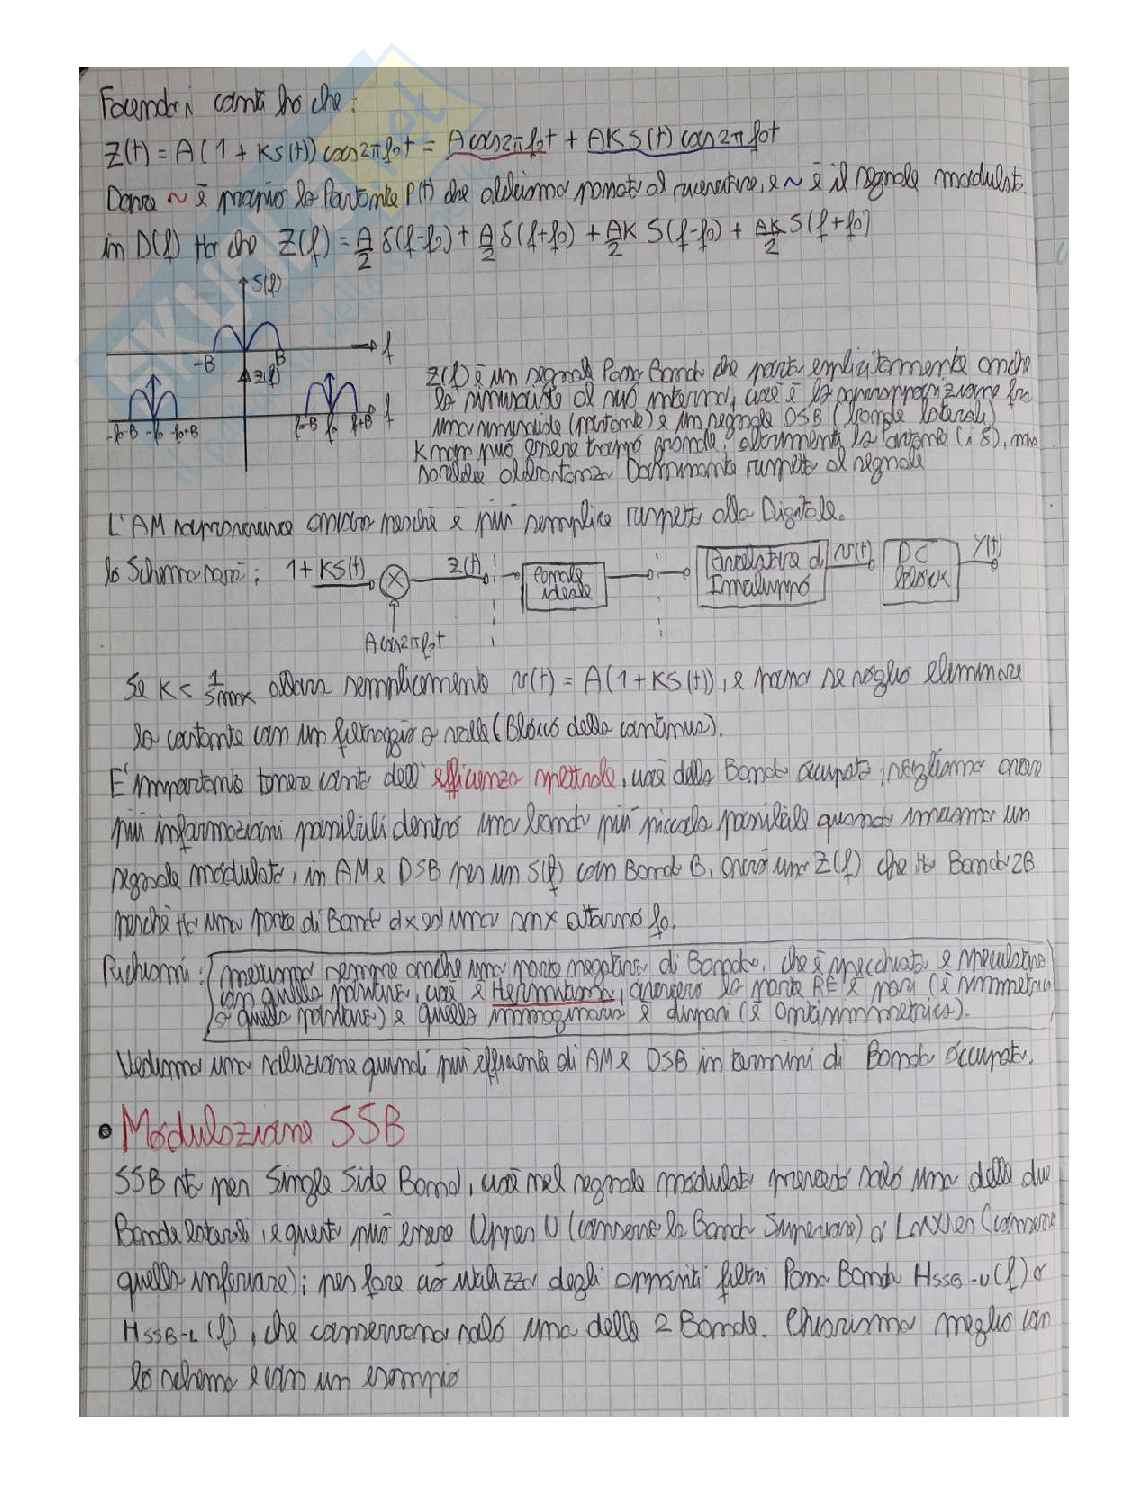 Facendo i conti ho che:
Z(t) = A(1 + KS(t)) cos2πf₀t = A cos2πf₀t + AKS(t) cos2πf₀t
Dove ~ è proprio la Portante P(t) che abbiamo portato al ricevitore, e ~ è il segnale modulato
in D(f) Ho che Z(f) = A/2 δ(f-f₀) + A/2 δ(f+f₀) + AK/2 S(f-f₀) + AK/2 S(f+f₀)
S(f)
f
-B B
Z(f)
f
-f₀-B -f₀ -f₀+B f₀-B f₀ f₀+B
Z(f) è un segnale Passa Banda che porta esplicitamente anche
la sinusoide al suo interno, cioè è la sovrapposizione fra
una sinusoide (portante) e un segnale DSB (bande laterali)
K non può essere troppo grande, altrimenti la portante (i δ), non
sarebbe abbastanza Dominante rispetto al segnale
L'AM sopravvive ancora perché è più semplice rispetto alla Digitale.
lo Schema sarà: 1+KS(t) Z(t) canale ideale Rivelatore di Inviluppo v(t) DC block y(t)
A cos2πf₀t
Se K < 1/Smax allora semplicemente v(t) = A(1+KS(t)), e posso se voglio eliminare
la costante con un filtraggio a valle (Blocco della continua).
E' importante tenere conto dell'efficienza spettrale, cioè della Banda occupata, vogliamo avere
più informazioni possibili dentro una banda più piccola possibile quando inviamo un
segnale modulato, in AM e DSB per un S(f) con Banda B, avrò uno Z(f) che ha Banda 2B
perché ha una parte di Banda dx ed una a sinx attorno f₀.
Richiami: avremo sempre anche una parte negativa di Banda, che è specchiata e speculare
con quella positiva, cioè è Hermitiana, ovvero la parte RE è pari (è simmetrica
a quella positiva) e quella immaginaria è dispari (è Antisimmetrica).
Vediamo una soluzione quindi più efficiente di AM e DSB in termini di Banda occupata.
• Modulazione SSB
SSB sta per Single Side Band, cioè nel segnale modulato prenderò solo una delle due
Bande laterali, e questa può essere Upper U (conserva la Banda Superiore) o Lower (conserva
quella inferiore); per fare ciò utilizzo degli appositi filtri Passa Banda HSSB-U(f) o
HSSB-L(f), che conservano solo una delle 2 Bande. Chiariamo meglio con
lo schema e con un esempio